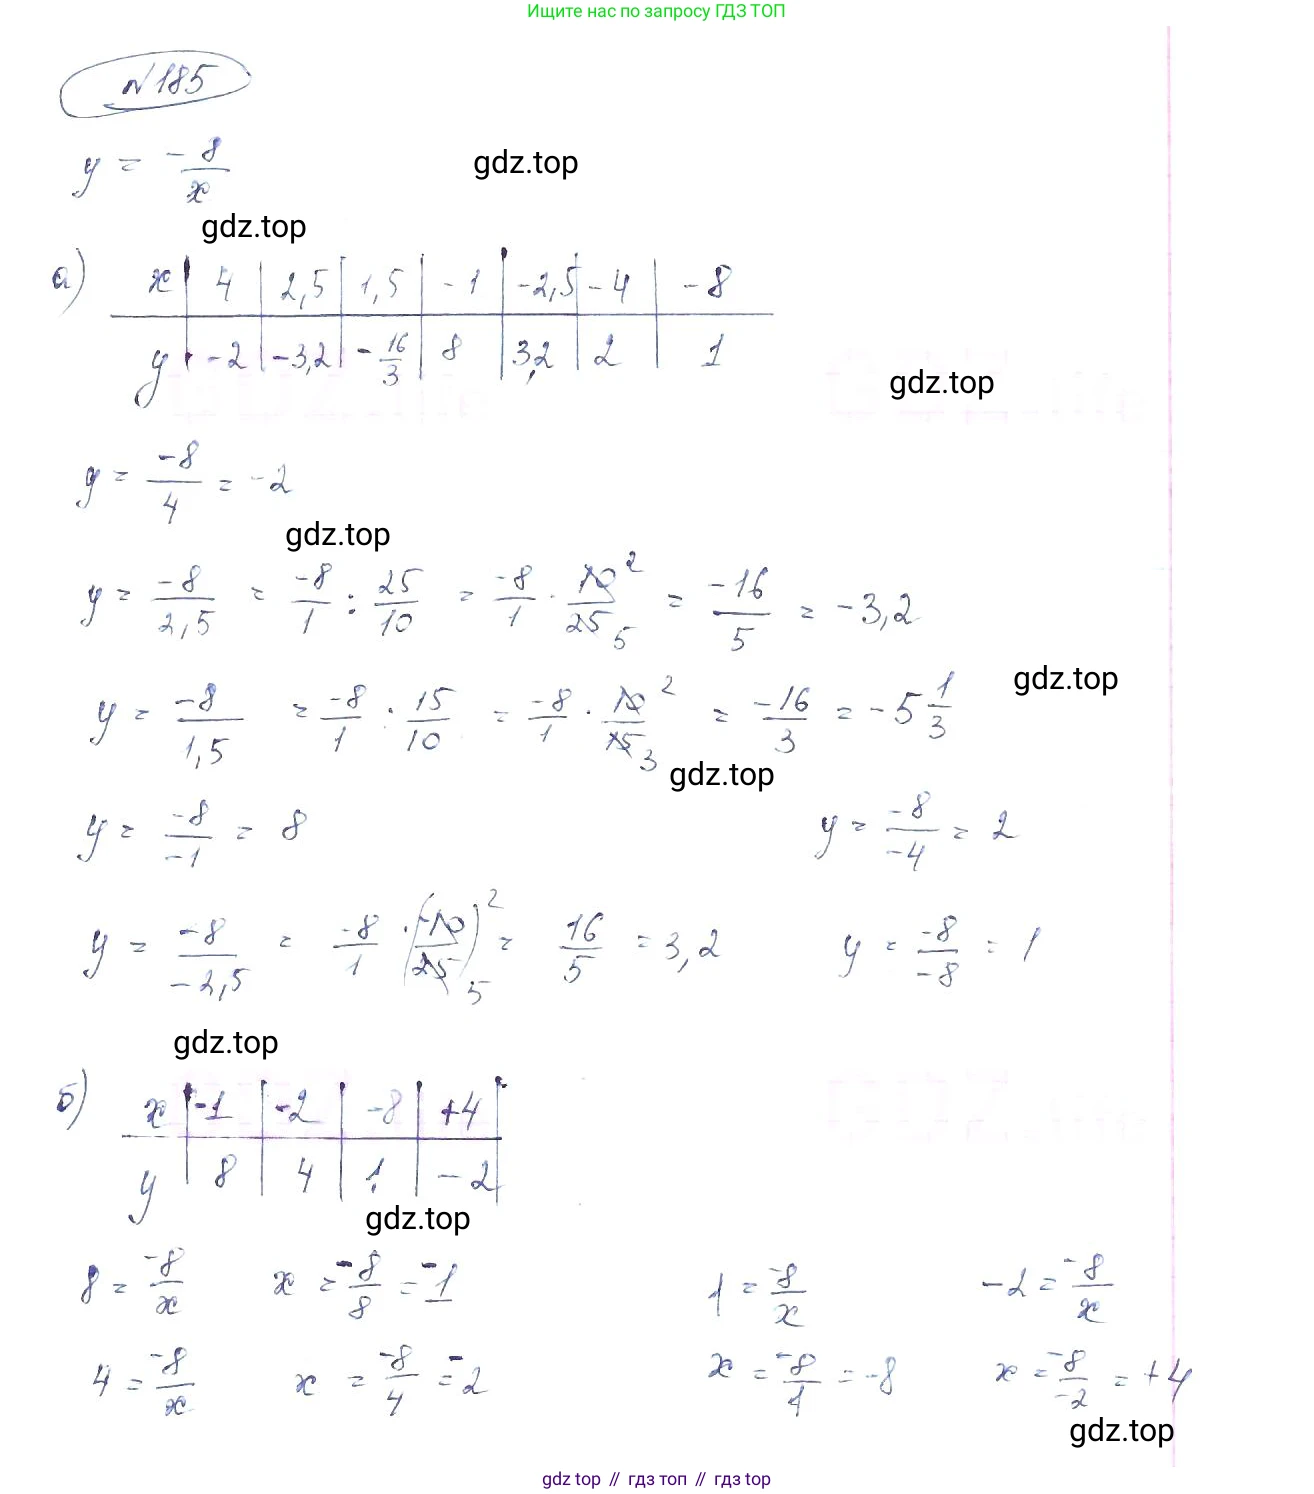 Ищите нас по запросу ГДЗ ТОП
№185
y = -8/x
gdz.top
gdz.top
а) x | 4 | 2,5 | 1,5 | -1 | -2,5 | -4 | -8
y | -2 | -3,2 | -16/3 | 8 | 3,2 | 2 | 1
gdz.top
y = -8/4 = -2
gdz.top
y = -8/2,5 = -8/1 : 25/10 = -8/1 · 10 2/25 5 = -16/5 = -3,2
gdz.top
y = -8/1,5 = -8/1 : 15/10 = -8/1 · 10 2/15 3 = -16/3 = -5 1/3
gdz.top
y = -8/-1 = 8 y = -8/-4 = 2
y = -8/-2,5 = -8/1 · (-10/25) 2 5 = 16/5 = 3,2 y = -8/-8 = 1
gdz.top
б) x | -1 | -2 | -8 | +4
y | 8 | 4 | 1 | -2
gdz.top
8 = -8/x x = -8/8 = -1 1 = -8/x -2 = -8/x
4 = -8/x x = -8/4 = -2 x = -8/1 = -8 x = -8/-2 = +4
gdz.top
gdz top // гдз топ // гдз top